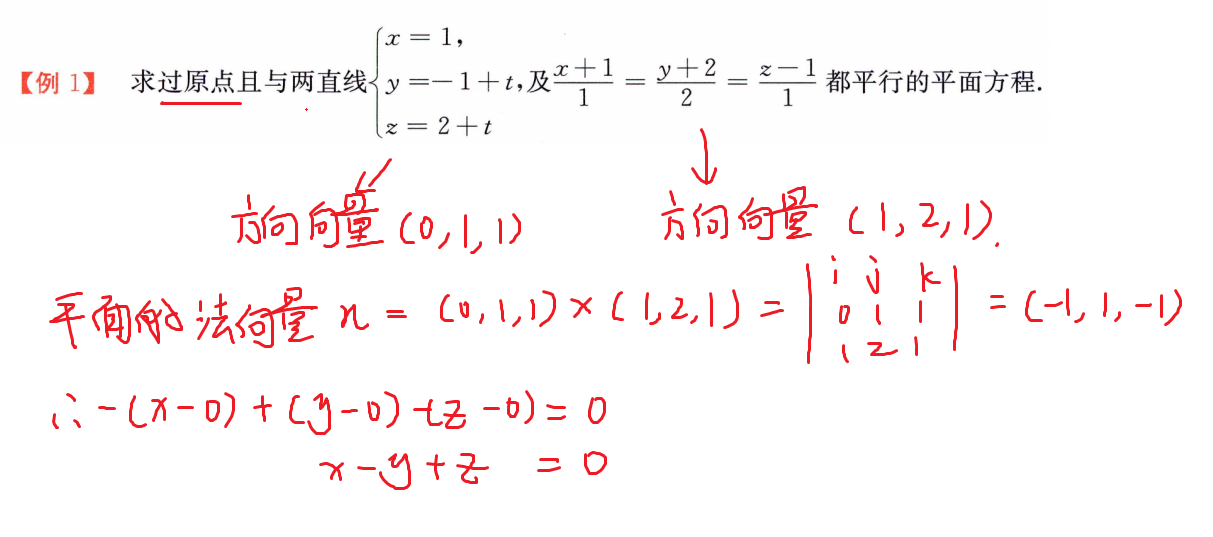 【例 1】 求过原点且与两直线{x=1, y=-1+t, z=2+t 及 (x+1)/1 = (y+2)/2 = (z-1)/1 都平行的平面方程.
方向向量 (0,1,1) 方向向量 (1,2,1).
平面的法向量 n = (0,1,1)×(1,2,1) = |i j k; 0 1 1; 1 2 1| = (-1,1,-1)
∴ -(x-0)+(y-0)-(z-0)=0
x-y+z =0